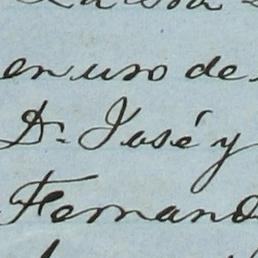 en uso de
D. José y
Fernand